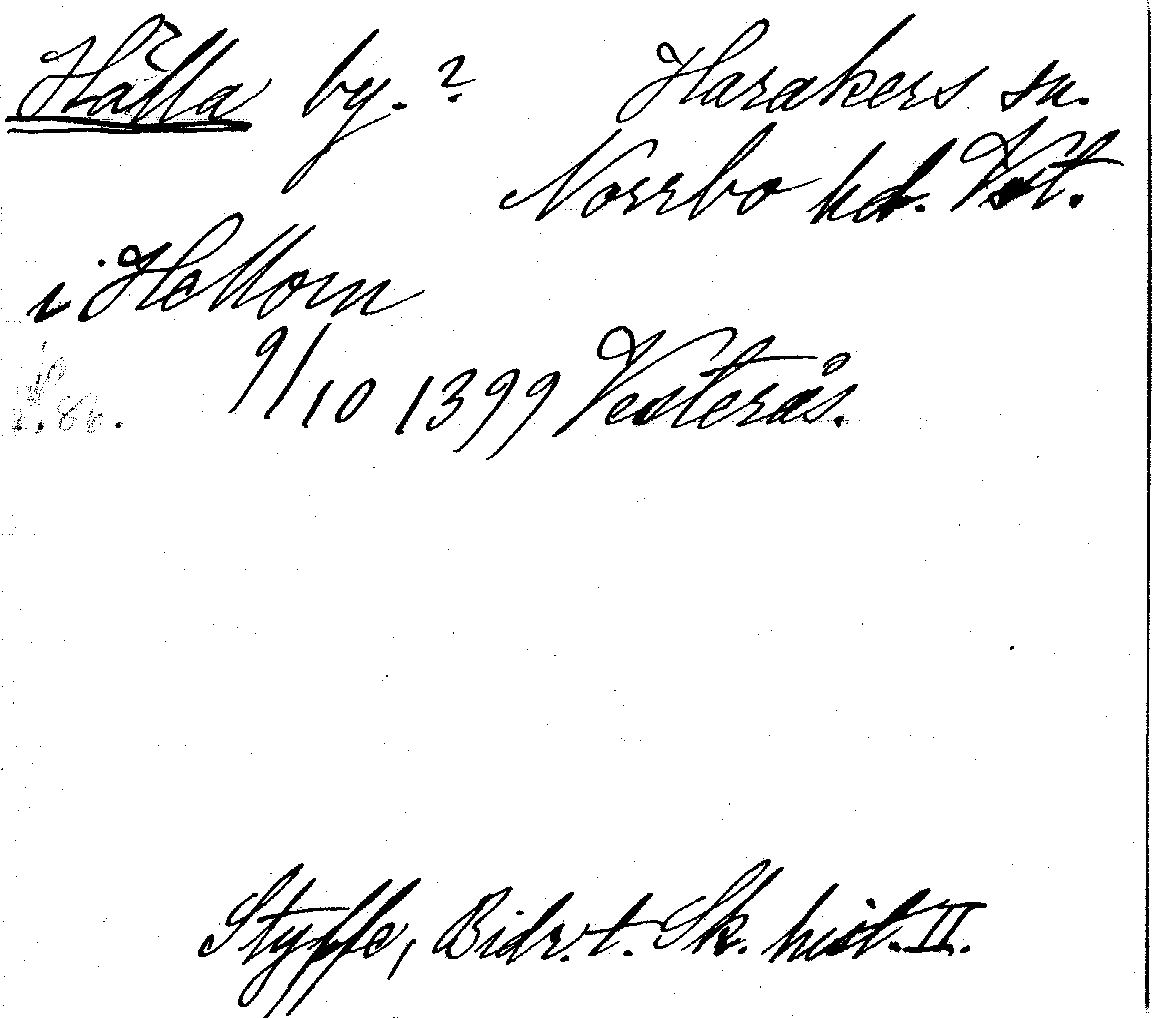 Hälla by.? Harakers sn.
Norrbo hd. Vst.
i Hellom
9/10 1399 Vesterås.
S. 86.
Styffe, Bidr. t. Sk. hist. II.